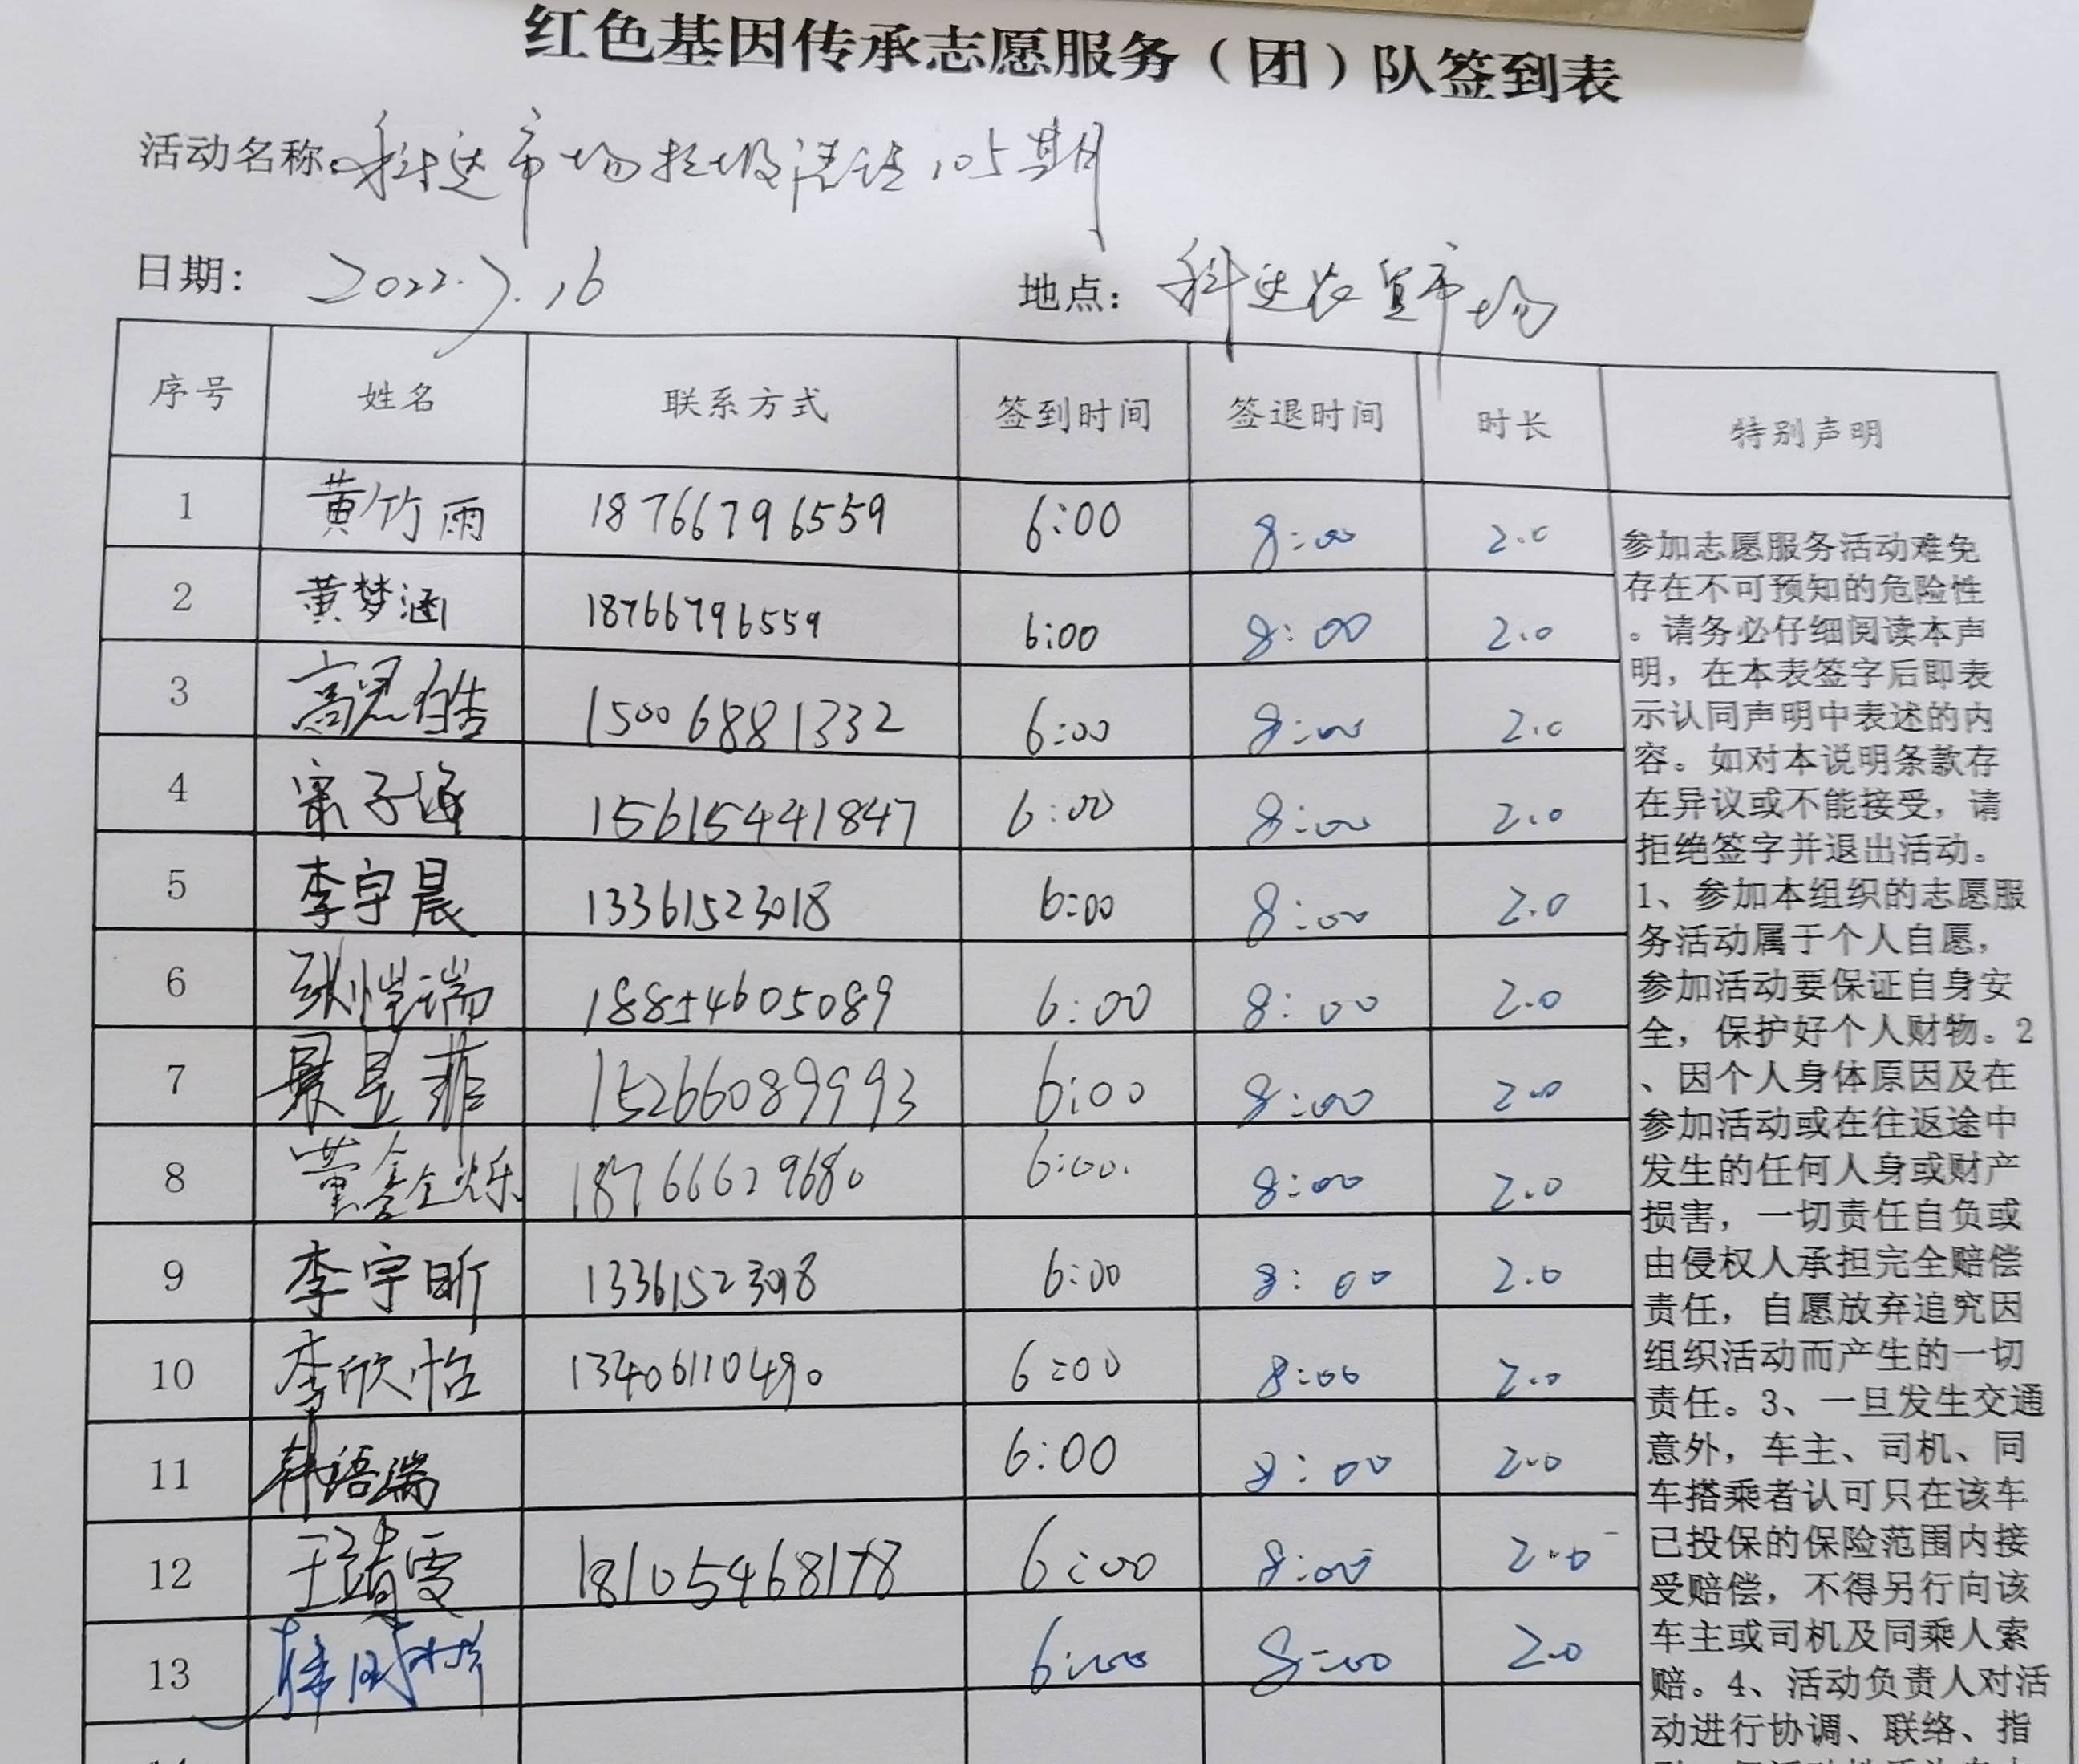 红色基因传承志愿服务（团）队签到表
活动名称:科达市场垃圾清洁105期
日期: 2022.7.16 地点: 科达农贸市场
序号 姓名 联系方式 签到时间 签退时间 时长 特别声明
1 黄竹雨 18766796559 6:00 8:00 2.0
2 黄梦涵 18766796559 6:00 8:00 2.0
3 高思皓 15006881332 6:00 8:00 2.0
4 宋子涵 15615441847 6:00 8:00 2.0
5 李宇晨 13361523018 6:00 8:00 2.0
6 张恺瑞 18854605089 6:00 8:00 2.0
7 景昱菲 15266089993 6:00 8:00 2.0
8 董鑫烁 18766629680 6:00 8:00 2.0
9 李宇昕 13361523018 6:00 8:00 2.0
10 李欣怡 13406110490 6:00 8:00 2.0
11 韩语端 6:00 8:00 2.0
12 王靖雯 18105468178 6:00 8:00 2.0
13 6:00 8:00 2.0
参加志愿服务活动难免
存在不可预知的危险性
。请务必仔细阅读本声
明，在本表签字后即表
示认同声明中表述的内
容。如对本说明条款存
在异议或不能接受，请
拒绝签字并退出活动。
1、参加本组织的志愿服
务活动属于个人自愿，
参加活动要保证自身安
全，保护好个人财物。2
、因个人身体原因及在
参加活动或在往返途中
发生的任何人身或财产
损害，一切责任自负或
由侵权人承担完全赔偿
责任，自愿放弃追究因
组织活动而产生的一切
责任。3、一旦发生交通
意外，车主、司机、同
车搭乘者认可只在该车
已投保的保险范围内接
受赔偿，不得另行向该
车主或司机及同乘人索
赔。4、活动负责人对活
动进行协调、联络、指